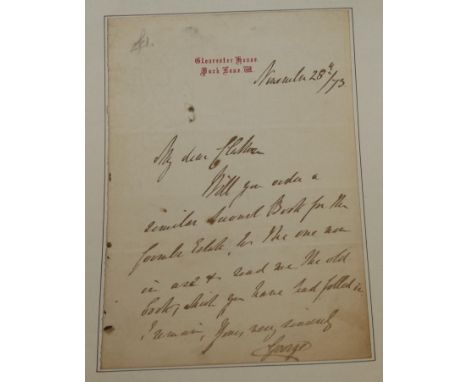 Gloucester House
Park Lane. W.
November 28th/73
My dear
Will you order a
similar Account Book for the
Coombe Estate, to the one now
in use & send me the old
book, which you have had filled in
I remain, Yours very sincerely
George